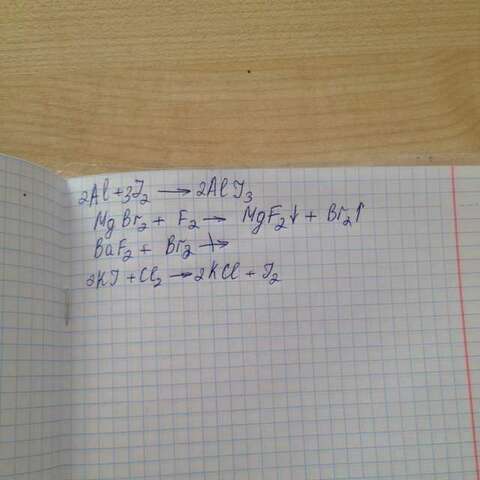 2Al + 3J₂ → 2AlJ₃
MgBr₂ + F₂ → MgF₂↓ + Br₂↑
BaF₂ + Br₂ ↛
2KJ + Cl₂ → 2KCl + J₂